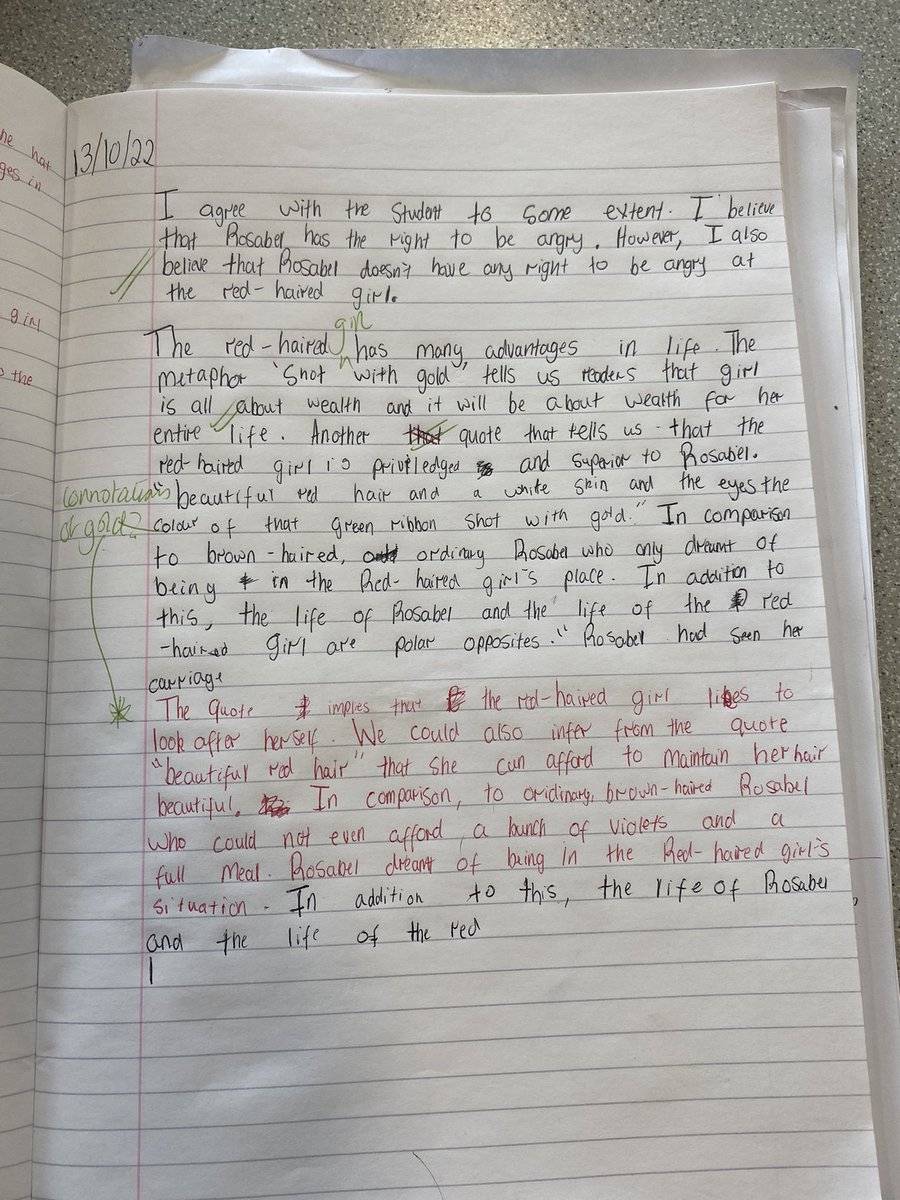 he hat
ges in
girl
o the
13/10/22
I agree with the student to some extent. I believe
that Rosabel has the right to be angry. However, I also
believe that Rosabel doesn't have any right to be angry at
the red-haired girl.
girl
The red-haired has many advantages in life. The
metaphor "shot with gold" tells us readers that girl
is all about wealth and it will be about wealth for her
entire life. Another that quote that tells us that the
red-haired girl is priviledged and superior to Rosabel.
"beautiful red hair and a white skin and the eyes the
connotations
of gold?
colour of that green ribbon shot with gold." In comparison
to brown-haired, and ordinary Rosabel who only dreamt of
being in the Red-haired girl's place. In addition to
this, the life of Rosabel and the life of the red
-haired girl are polar opposites." Rosabel had seen her
carriage
The quote implies that the red-haired girl likes to
look after herself. We could also infer from the quote
"beautiful red hair" that she can afford to maintain her hair
beautiful. In comparison, to oridinary, brown-haired Rosabel
who could not even afford a bunch of violets and a
full meal. Rosabel dreamt of being in the Red-haired girl's
situation. In addition to this, the life of Rosabel
and the life of the red